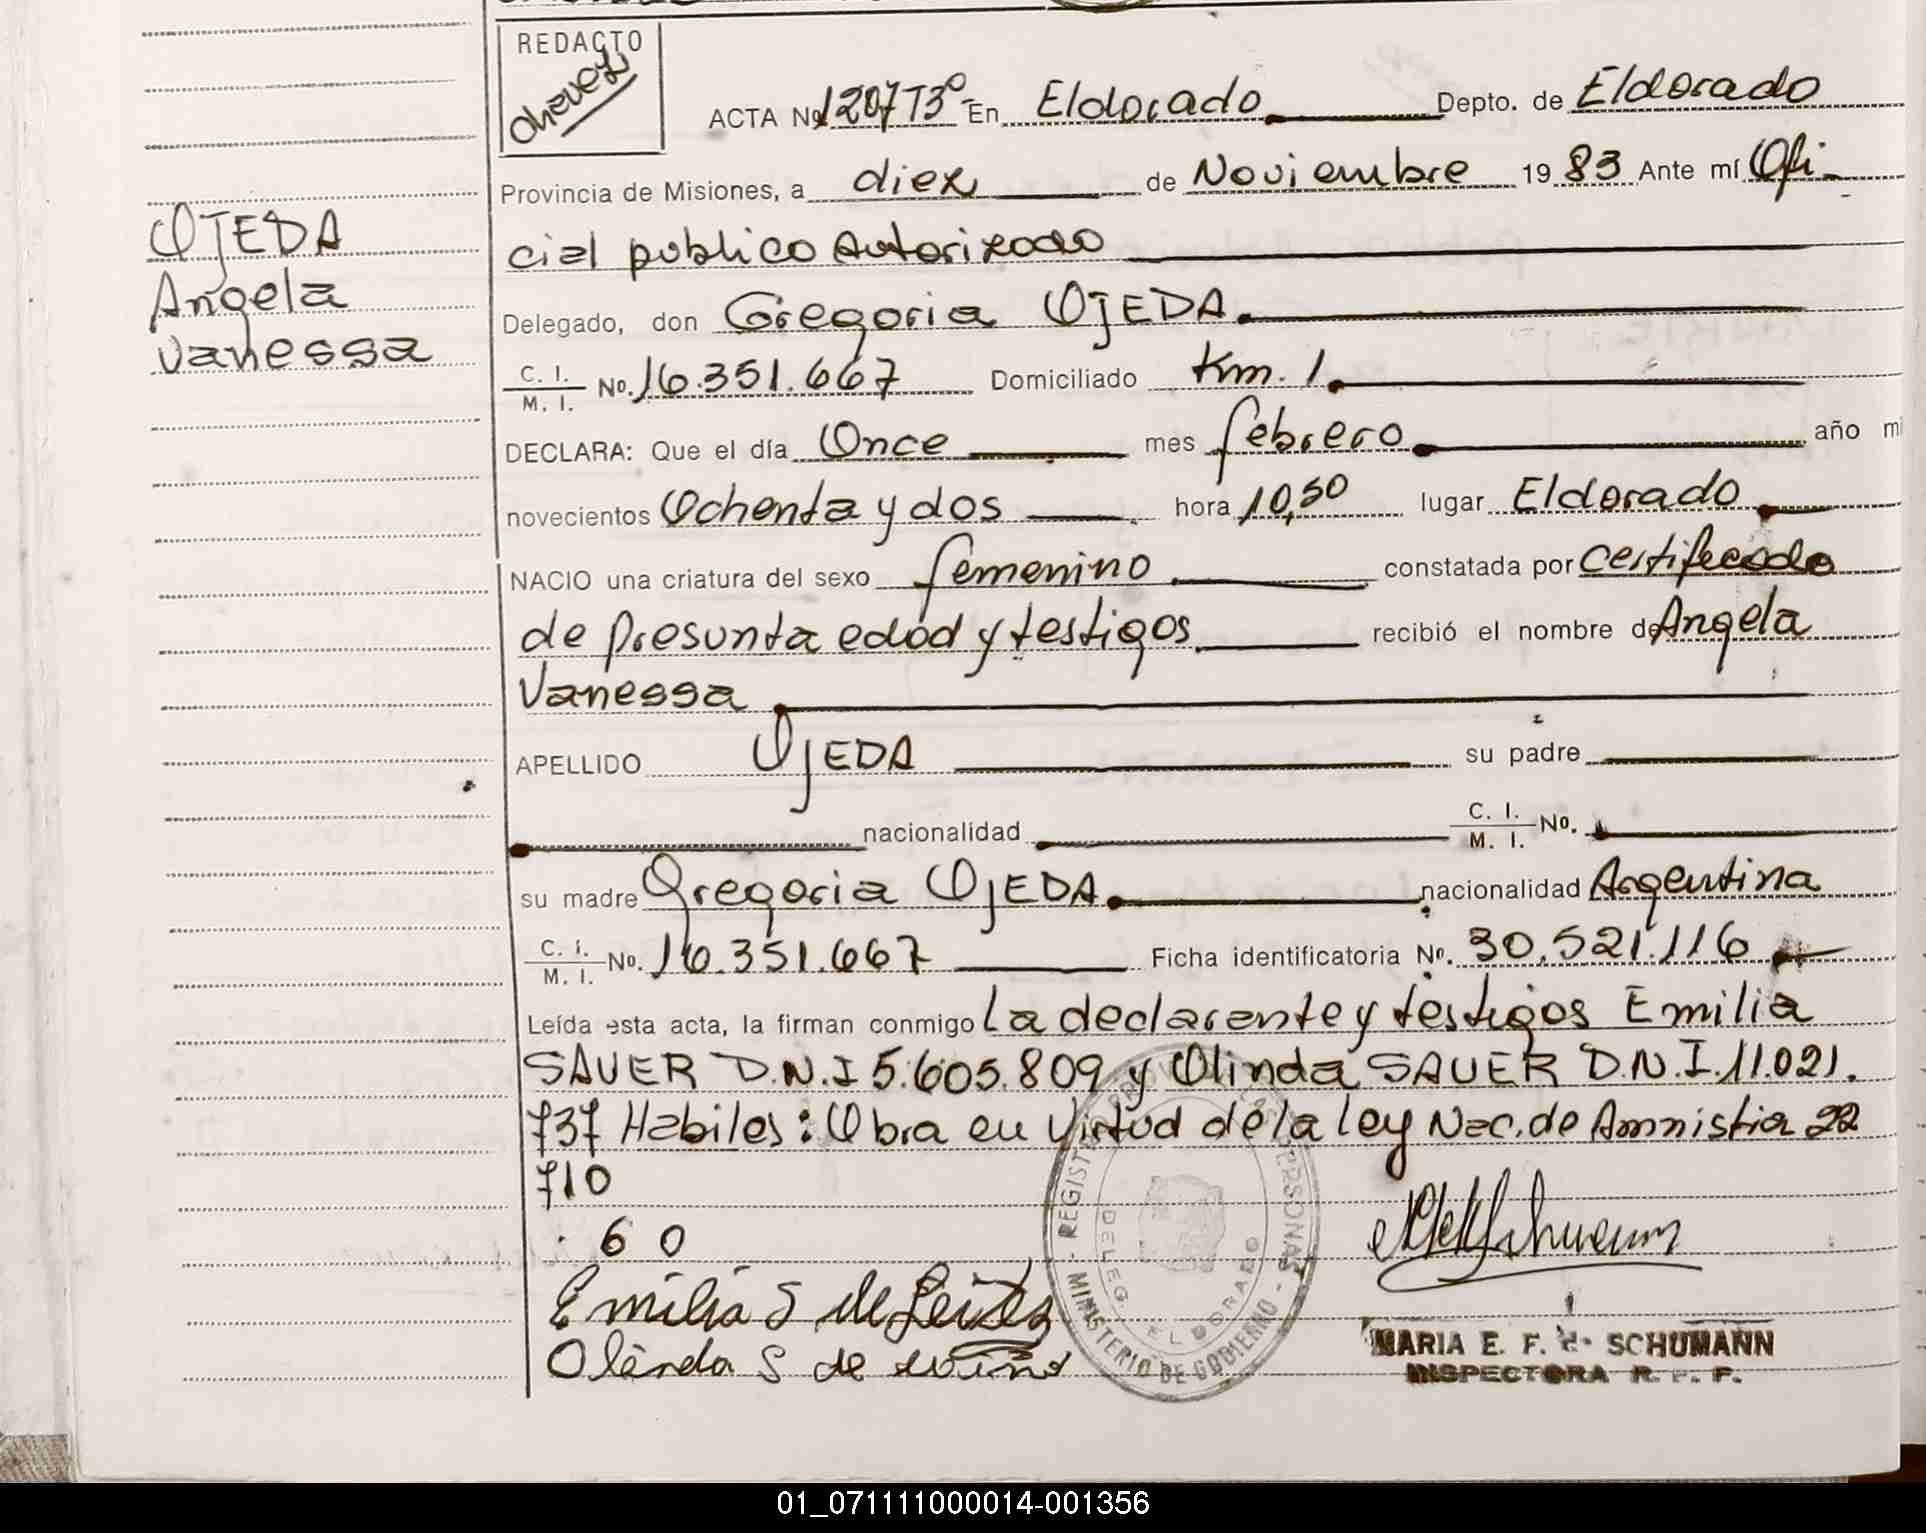 REDACTO
Chavez
ACTA Nº 1207 T3º En Eldorado Depto. de Eldorado
Provincia de Misiones, a diez de Noviembre 1983 Ante mí Ofi-
cial publico Autorizado
OJEDA
Angela
Vanessa
Delegado, don Gregoria OJEDA
C. I.
M. I. Nº. 16.351.667 Domiciliado Km. 1
DECLARA: Que el día Once mes febrero año mi
novecientos Ochenta y dos hora 10,50 lugar Eldorado
NACIO una criatura del sexo femenino constatada por certificado
de presunta edad y testigos recibió el nombre de Angela
Vanessa
APELLIDO OJEDA su padre
nacionalidad C. I.
M. I. Nº.
su madre Gregoria OJEDA nacionalidad Argentina
C. I.
M. I. Nº. 16.351.667 Ficha identificatoria Nº. 30.521.116
Leída esta acta, la firman conmigo La declarante y testigos Emilia
SAUER D.N.I 5.605.809 y Olinda SAUER D.N.I. 11.021.
737 Habiles: Obra en Virtud de la ley Nac. de Amnistia 22
710
60
Emilia S de
Olinda S de
REGISTRO PROV PERSONAS
DELEG. ELDORADO
MINISTERIO DE GOBIERNO
MARIA E. F. SCHUMANN
INSPECTORA R. P. P.
01_071111000014-001356